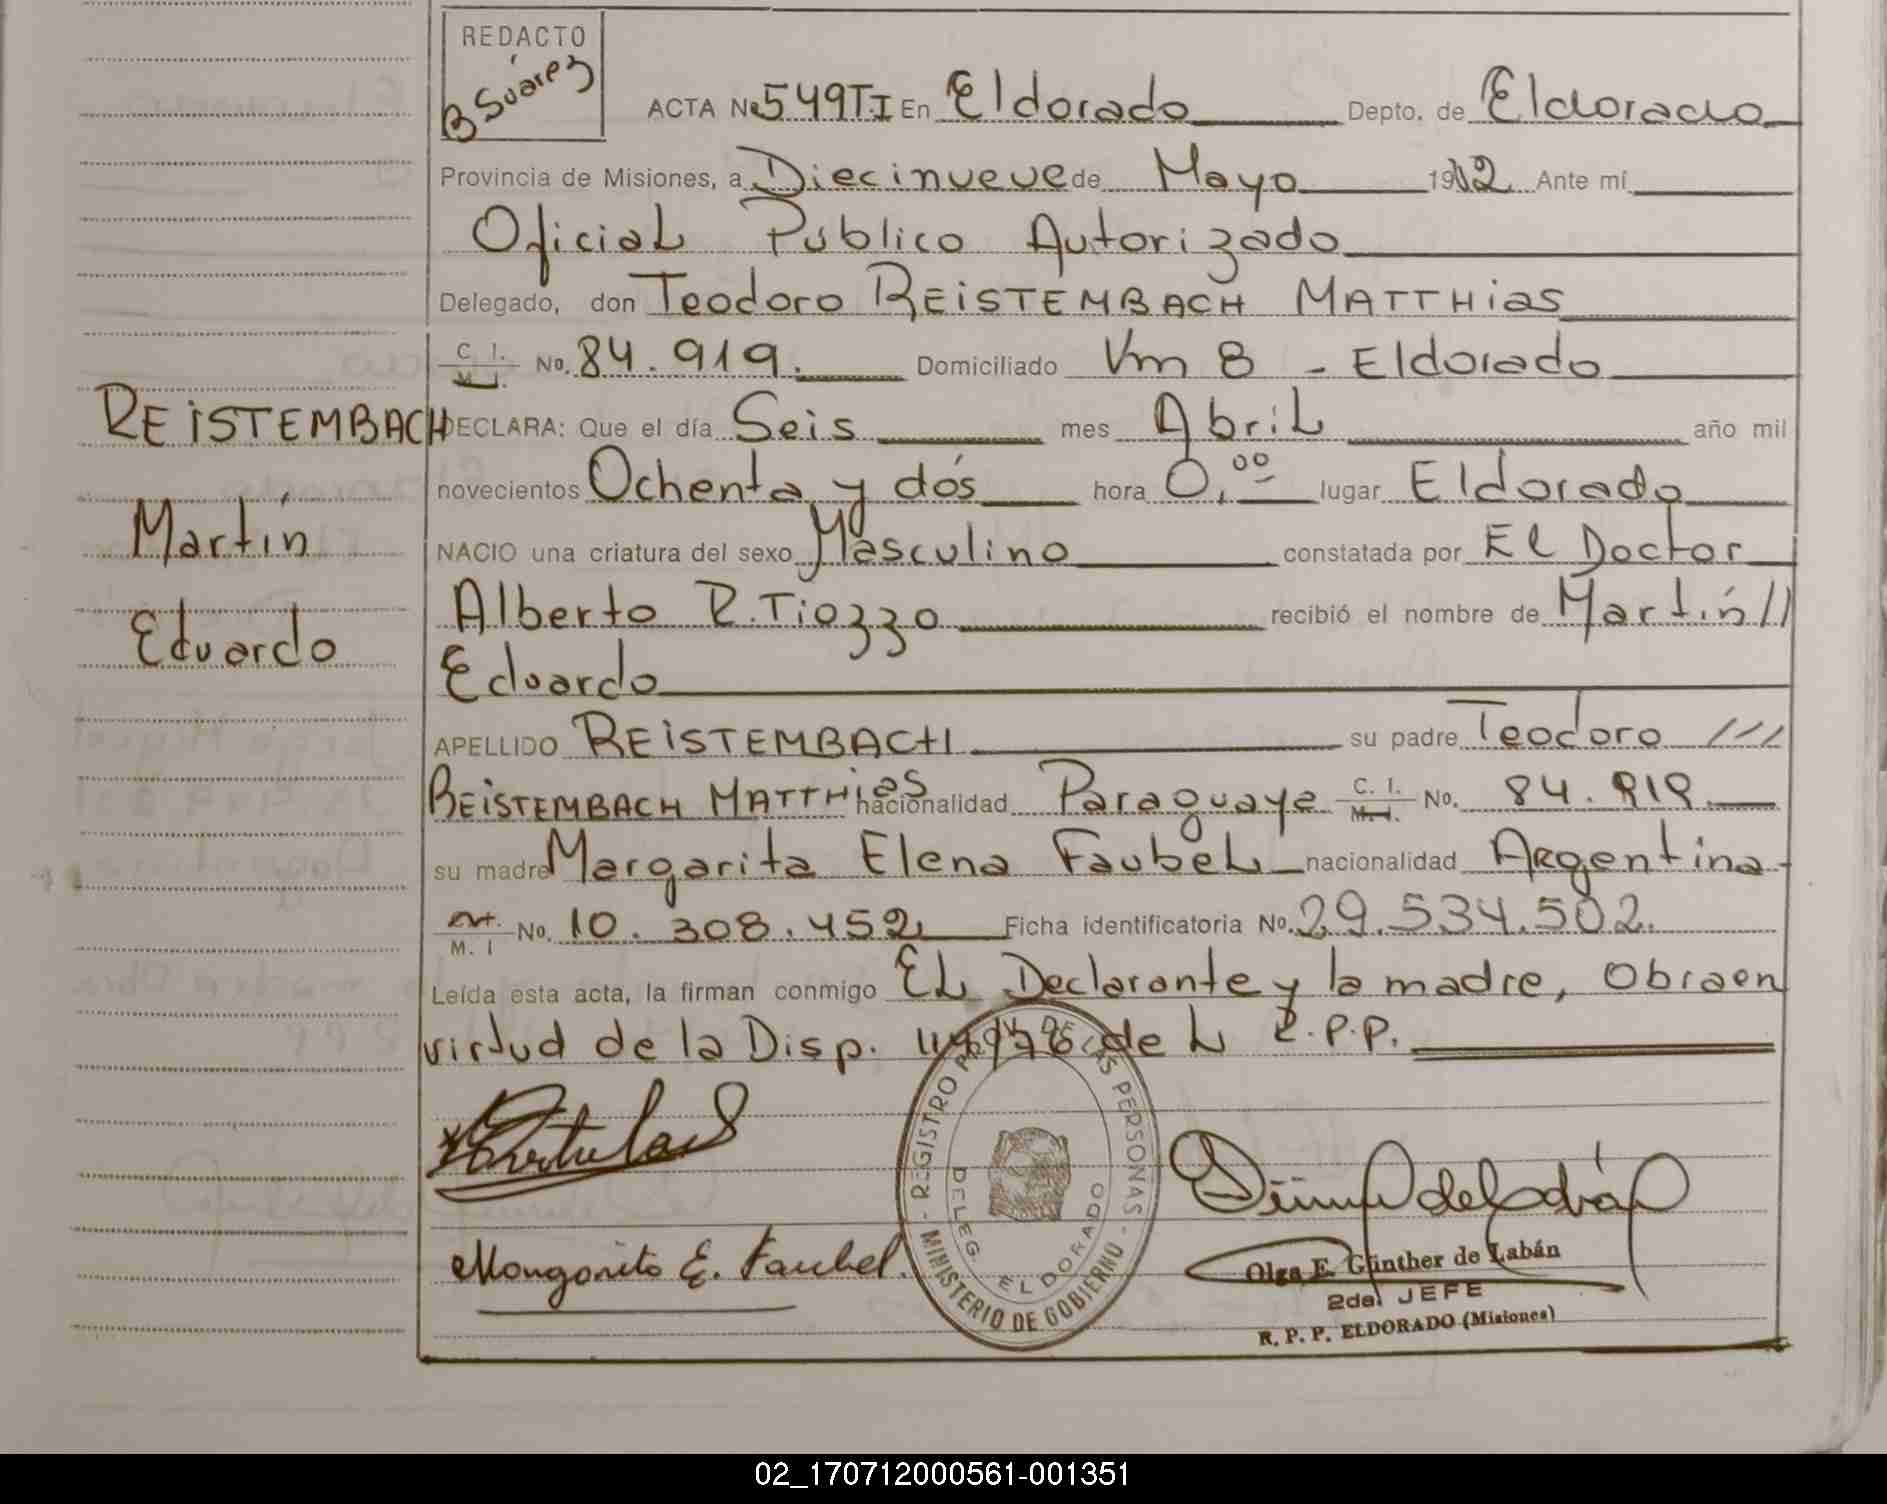 REDACTO
B Suárez
ACTA Nº 549TI En Eldorado Depto. de Eldorado
Provincia de Misiones, a Diecinueve de Mayo 1982 Ante mí
Oficial Público Autorizado
Delegado, don Teodoro REiSTEMBACH MATTHias
C. I. No. 84.919. Domiciliado Km 8 - Eldorado
M. I.
REiSTEMBACH
DECLARA: Que el día Seis mes Abril año mil
novecientos Ochenta y dós hora 0,00 lugar Eldorado
Martín
NACIO una criatura del sexo Masculino constatada por El Doctor
Eduardo
Alberto R. Tiozzo recibió el nombre de Martín //
Eduardo
APELLIDO REiSTEMBACH su padre Teodoro ///
REiSTEMBACH MATTHias nacionalidad Paraguaya C. I. No. 84.919
M. I.
su madre Margarita Elena Faubel nacionalidad Argentina
No. 10.308.452 Ficha identificatoria No. 29.534.502.
M. I
Leída esta acta, la firman conmigo El Declarante y la madre, Obra en
virtud de la Disp. de L R.P.P.
Margarita E. Faubel.
REGISTRO DE LAS PERSONAS - MINISTERIO DE GOBIERNO -
DELEG. ELDORADO
Olga E. Günther de Labán
2da. JEFE
R. P. P. ELDORADO (Misiones)
02_170712000561-001351